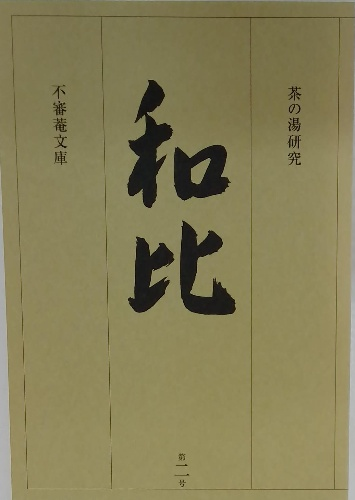 茶の湯研究
和比
第二号
不審菴文庫